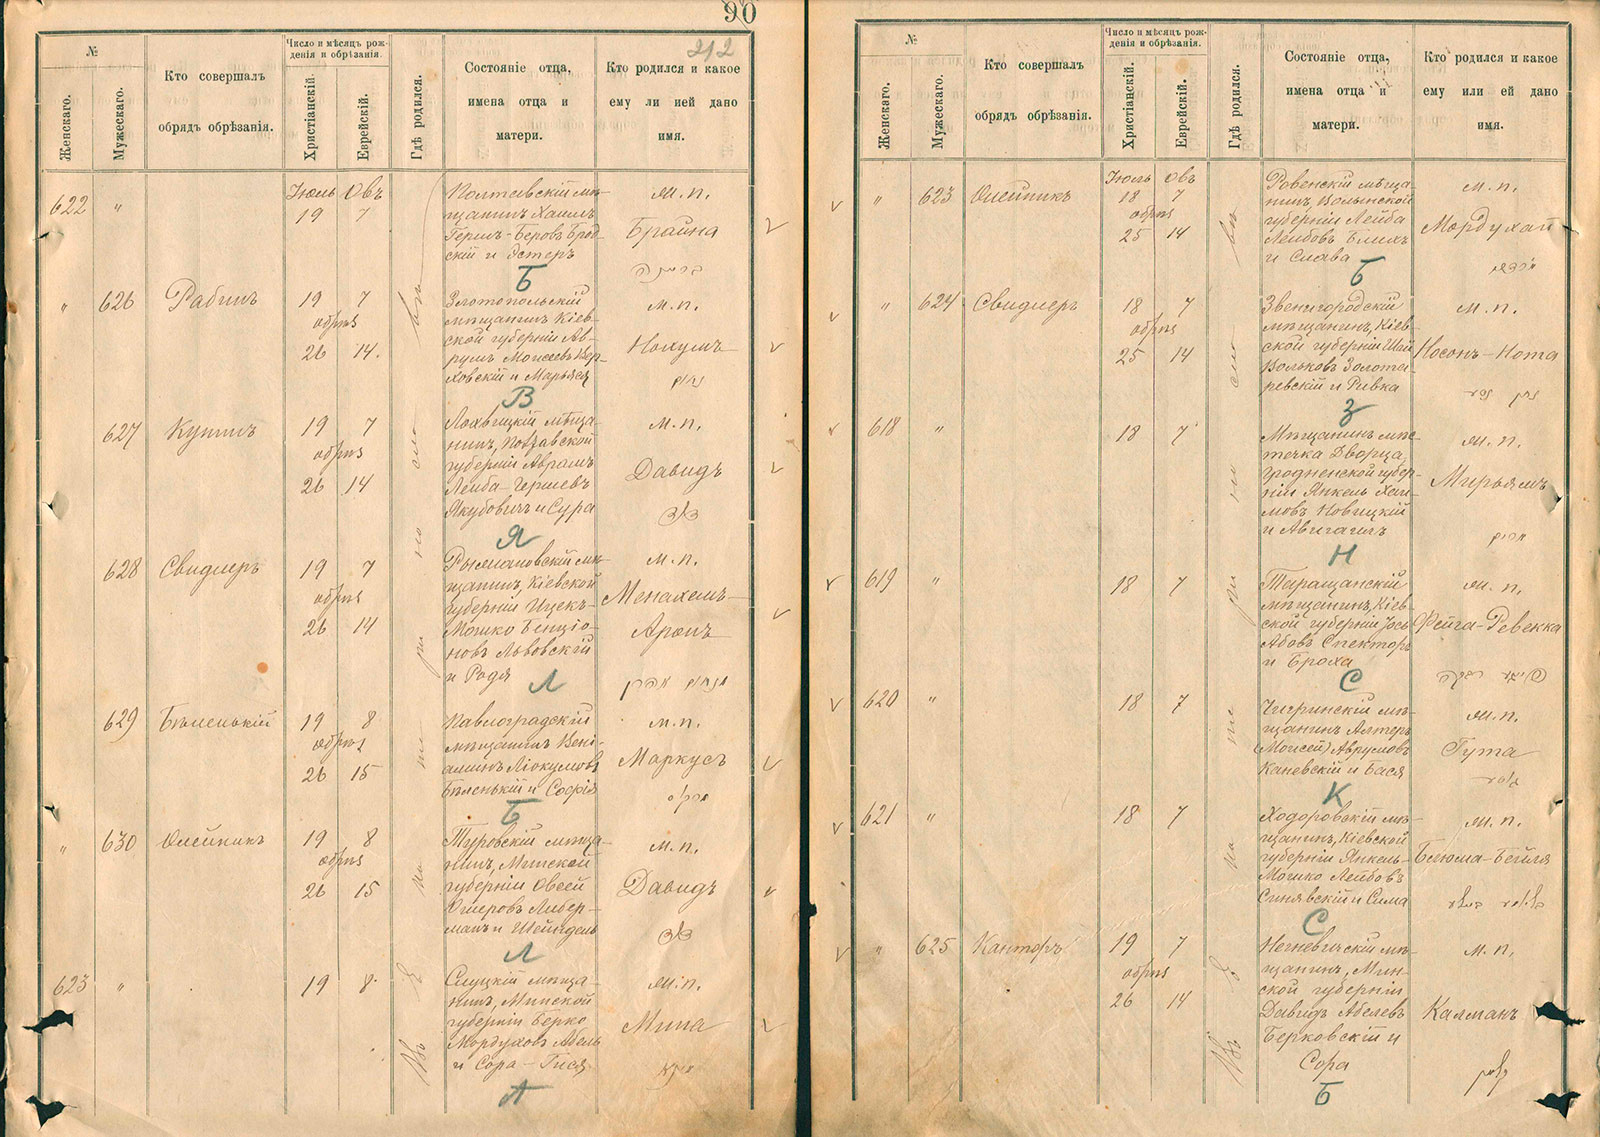 90
212
№
Женскаго.
Мужескаго.
Кто совершалъ
обрядъ обрѣзанія.
Число и мѣсяцъ рож-
денія и обрѣзанія.
Христіанскій.
Еврейскій.
Гдѣ родился.
Состояніе отца,
имена отца и
матери.
Кто родился и какое
ему ли ией дано
имя.
622 "
Іюль Овъ
19 7
Полтавскій мѣ-
щанинъ Хаимъ
Гершъ-Беровъ Брод-
скій и Эстеръ
м.п.
Брайна
Б
" 626 Рабинъ
19 7
обрѣз
26 14.
Златопольскій
мѣщанинъ Кіев-
ской губерніи Ав-
румъ Моисеевъ Вер-
ховскій и Марьяся
м.п.
Нохумъ
נחום
В
627 Купинъ
19 7
обрѣз
26 14
Лохвицкій мѣща-
нинъ, Полтавской
губерніи Аврамъ
Лейба-Гершевъ
Якубовичъ и Сура
м.п.
Давидъ
דוד
Я
628 Свидлеръ
19 7
обрѣз
26 14
мѣ-
щанинъ, Кіевской
губерніи Ицекъ-
Мошко Бенціо-
новъ Львовскій
и Родя
м.п.
Менахемъ-
Аронъ
מנחם אהרן
Л
629 Бѣленькій
19 8
обрѣз
26 15
Павлоградскій
мѣщанинъ Вені-
аминъ
Бѣленькій и Софія
м.п.
Маркусъ
מרקוס
Б
" 630 Олейникъ
19 8
обрѣз
26 15
Туровскій мѣща-
нинъ, Минской
губерніи Овсей
Ошеровъ Либер-
манъ и Шейндель
м.п.
Давидъ
דוד
Л
623 "
19 8
Слуцкій мѣща-
нинъ, Минской
губерніи Берко
Мордуховъ Абель
и Сора-Гися
м.п.
Мина
מינא
А
въ г. Екатери
№
Женскаго.
Мужескаго.
Кто совершалъ
обрядъ обрѣзанія.
Число и мѣсяцъ рож-
денія и обрѣзанія.
Христіанскій.
Еврейскій.
Гдѣ родился.
Состояніе отца,
имена отца и
матери.
Кто родился и какое
ему или ей дано
имя.
" 623 Олейникъ
Іюль Овъ
18 7
обрѣз
25 14
Ровенскій мѣща-
нинъ, Волынской
губерніи Лейба
Лейбовъ Блихъ
и Слава
м.п.
Мордухай
מרדכי
Б
" 624 Свидлеръ
18 7
обрѣз
25 14
Звенигородскій
мѣщанинъ, Кіев-
ской губерніи Шая
Вольковъ Золота-
ревскій и Ривка
м.п.
Носонъ-Нота
נתן נטע
З
618 "
18 7
Мѣщанинъ мѣс-
течка Дворца,
Гродненской губер-
ніи Янкель Хаи-
мовъ Новицкій
и Авигаилъ
м.п.
Мирьямъ
מרים
Н
619 "
18 7
Таращанскій
мѣщанинъ, Кіев-
ской губерніи Іось
Абовъ Спекторъ
и Броха
м.п.
Фейга-Ревекка
פייגא רבקה
С
620 "
18 7
Чигринскій мѣ-
щанинъ Алтеръ
(Моисей) Аврумовъ
Каневскій и Бася
м.п.
Гута
גוטא
К
621 "
18 7
Ходоровскій мѣ-
щанинъ, Кіевской
губерніи Янкель-
Мошко Лейбовъ
Синявскій и Сима
м.п.
Блюма-Бейля
בלומא ביילא
С
" 625 Канторъ
19 7
обрѣз
26 14
Негневичскій мѣ-
щанинъ, Мин-
ской губерніи
Давидъ Абелевъ
Берковскій и
Сора
м.п.
Калманъ
קלמן
Б